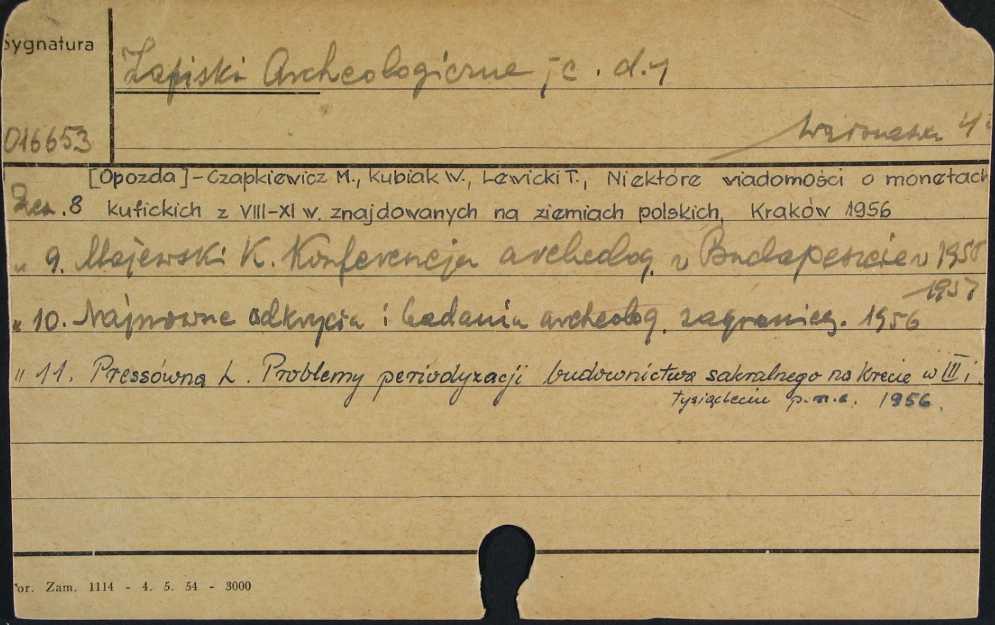 Sygnatura
Zapiski Archeologiczne /c. d./
016653
Warszawa 4°
[Opozda]-Czapkiewicz M., Kubiak W., Lewicki T., Niektóre wiadomości o monetach
Zesz. 8 kufickich z VIII-XI w. znajdowanych na ziemiach polskich, Kraków 1956
" 9. Majewski K. Konferencja archeolog. w Budapeszcie w 1955
1957
" 10. Najnowne odkrycia i badania archeolog. zagranicz. 1956
" 11. Pressówna L. Problemy periodyzacji budownictwa sakralnego na Krecie w III i
tysiącleciu p.n.e. 1956.
or. Zam. 1114 - 4. 5. 54 - 3000